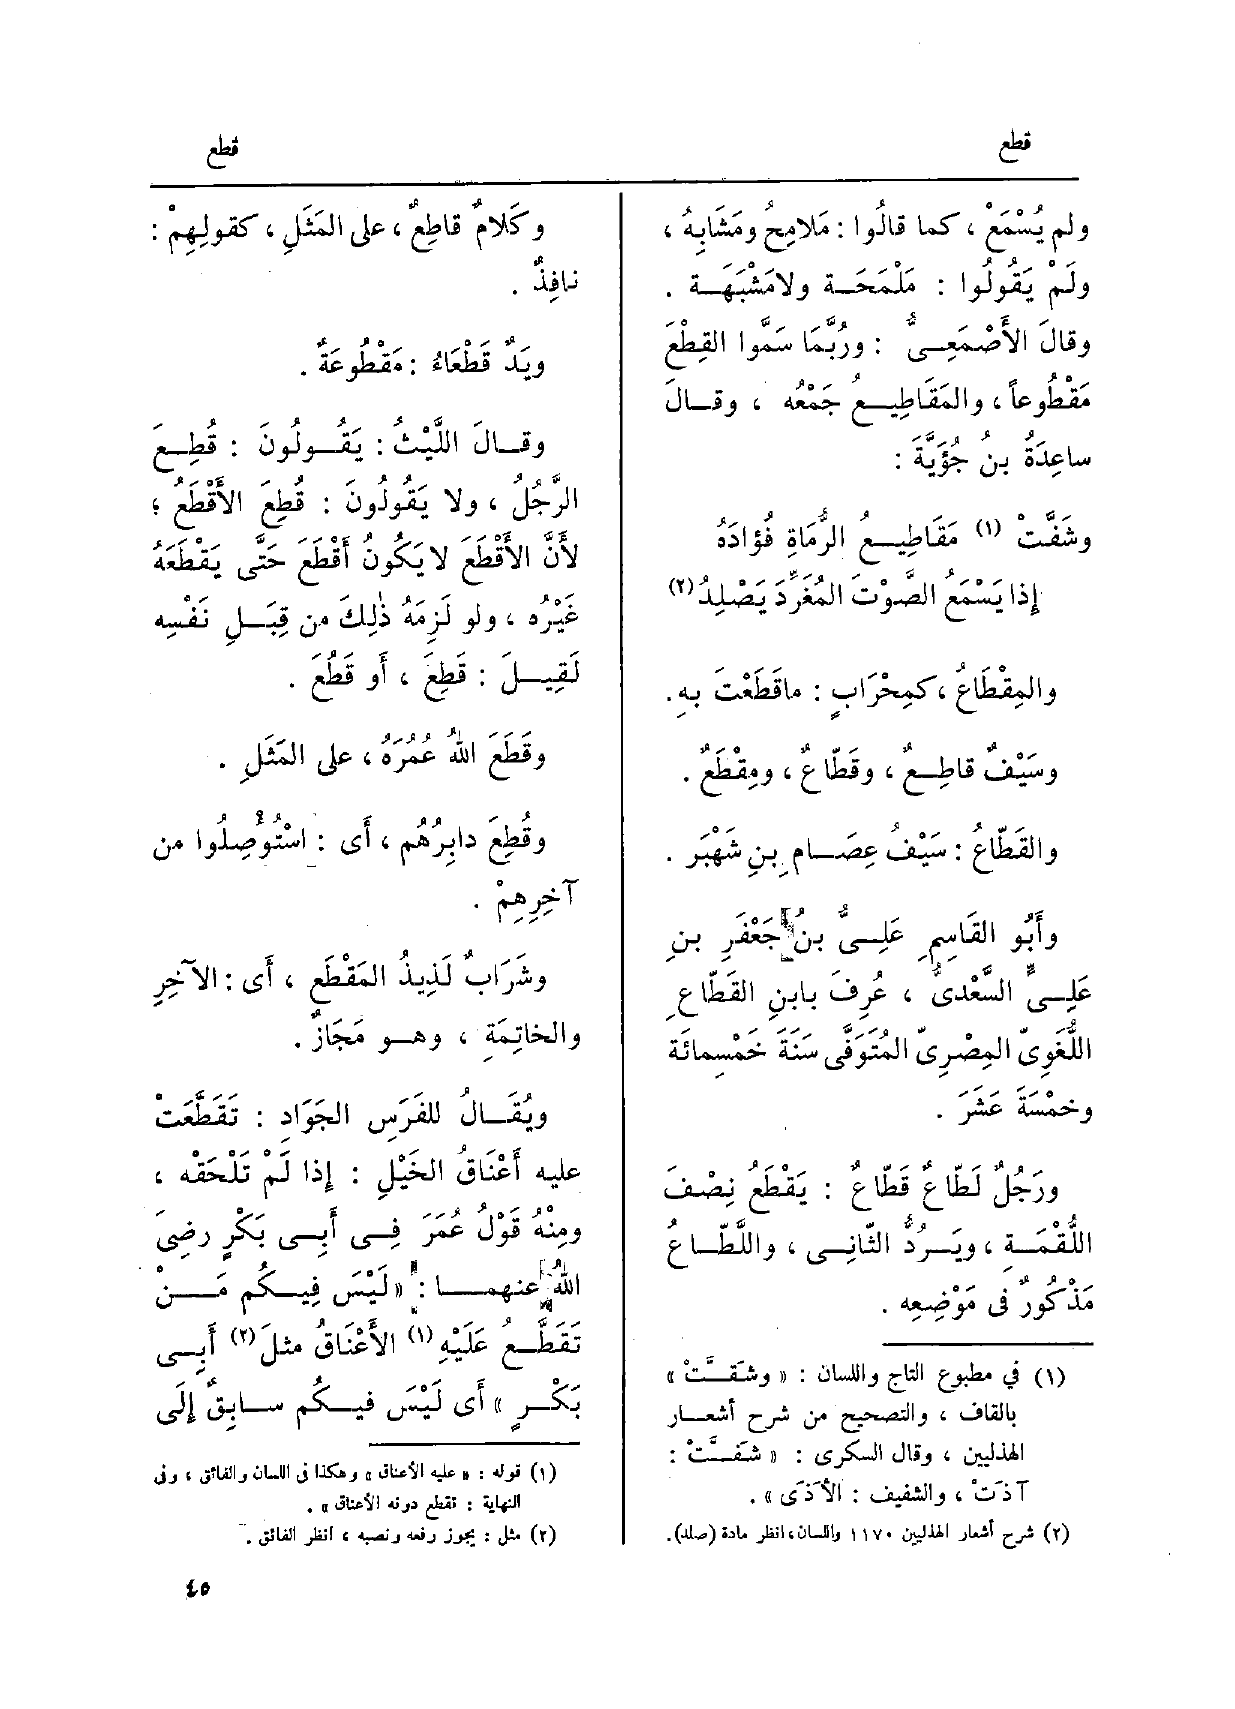 قطع
قطع
ولم يُسْمَعْ ، كما قالُوا : مَلامِحُ ومَشَابِهُ ،
ولَمْ يَقُولُوا : مَلْمَحَـة ولامَشْبَهَـة .
وقالَ الأَصْمَعِـىُّ : ورُبَّمَا سَمَّوا القِطْعَ
مَقْطُوعاً ، والمَقَاطِيـعُ جَمْعُه ، وقـالَ
ساعِدَةُ بن جُؤَيَّةَ :
وشَفَّتْ (١) مَقَاطِيـعُ الرُّمَاةِ فُؤَادَهُ
إذا يَسْمَعُ الصَّوْتَ المُغَرِّدَ يَصْلِدُ (٢)
والمِقْطَاعُ ، كمِحْرَابٍ : ماقَطَعْتَ بهِ .
وسَيْفٌ قاطِـعٌ ، وقَطّاعٌ ، ومِقْطَعٌ .
والقَطّاعُ : سَيْفُ عِصَـامِ بنِ شَهْبَر .
وأَبُو القَاسِمِ عَلِـىُّ بنُ جَعْفَرِ بنِ
عَلِـىٍّ السَّعْدىُّ ، عُرِفَ بابنِ القَطّاعِ
اللُّغَوِىّ المِصْرِىّ المُتَوَفَّى سَنَةَ خَمْسِمائَة
وخَمْسَةَ عَشَرَ .
ورَجُلٌ لَطّاعٌ قَطّاعٌ : يَقْطَعُ نِصْفَ
اللُّقْمَـةِ ، ويَـرُدُّ الثّانِـى ، واللَّطّـاعُ
مَذْكُورٌ فى مَوْضِعِه .
(١) في مطبوع التاج واللسان : « وشَقَّـتْ »
بالقاف ، والتصحيح من شرح أشعـار
الهذليين ، وقال السكرى : « شَفَّـتْ :
آذَتْ ، والشفيف : الأَذَى » .
(٢) شرح أشعار الهذليين ١١٧٠ واللسان، انظر مادة (صلد).
وكَلامٌ قاطِعٌ ، على المَثَلِ ، كقولِهِمْ :
نافِذٌ .
ويَدٌ قَطْعَاءُ : مَقْطُوعَةٌ .
وقـالَ اللَّيْثُ : يَقُـولُونَ : قُطِـعَ
الرَّجُلُ ، ولا يَقُولُونَ : قُطِعَ الأَقْطَعُ ؛
لأَنَّ الأَقْطَعَ لايَكُونُ أَقْطَعَ حَتَّى يَقْطَعَهُ
غَيْرُه ، ولو لَزِمَهُ ذٰلِكَ من قِبَـلِ نَفْسِه
لَقِيـلَ : قَطِعَ ، أَو قَطُعَ .
وقَطَعَ اللهُ عُمُرَهُ ، على المَثَلِ .
وقُطِعَ دابِرُهُم ، أَى : اسْتُؤْصِلُوا من
آخِرِهِمْ .
وشَرَابٌ لَذِيذُ المَقْطَعِ ، أَى : الآخِرِ
والخاتِمَةِ ، وهـو مَجَازٌ .
ويُقَـالُ للفَرَسِ الجَوَادِ : تَقَطَّعَتْ
عليه أَعْنَاقُ الخَيْلِ : إذا لَمْ تَلْحَقْه ،
ومِنْهُ قَوْلُ عُمَرَ فِـى أَبِـى بَكْرٍ رضِىَ
اللهُ عنهمـا : « لَيْسَ فِيـكُم مَـنْ
تَقَطَّـعُ عَلَيْهِ (١) الأَعْنَاقُ مثلَ (٢) أَبِـى
بَكْـرٍ » أَى لَيْسَ فيـكُم سـابِقٌ إلَى
(١) قوله : « عليه الأعناق » وهكذا فى اللسان والفائق ، وفى
النهاية : تقطع دونه الأعناق » .
(٢) مثل : يجوز رفعه ونصبه ، انظر الفائق .
٤٥